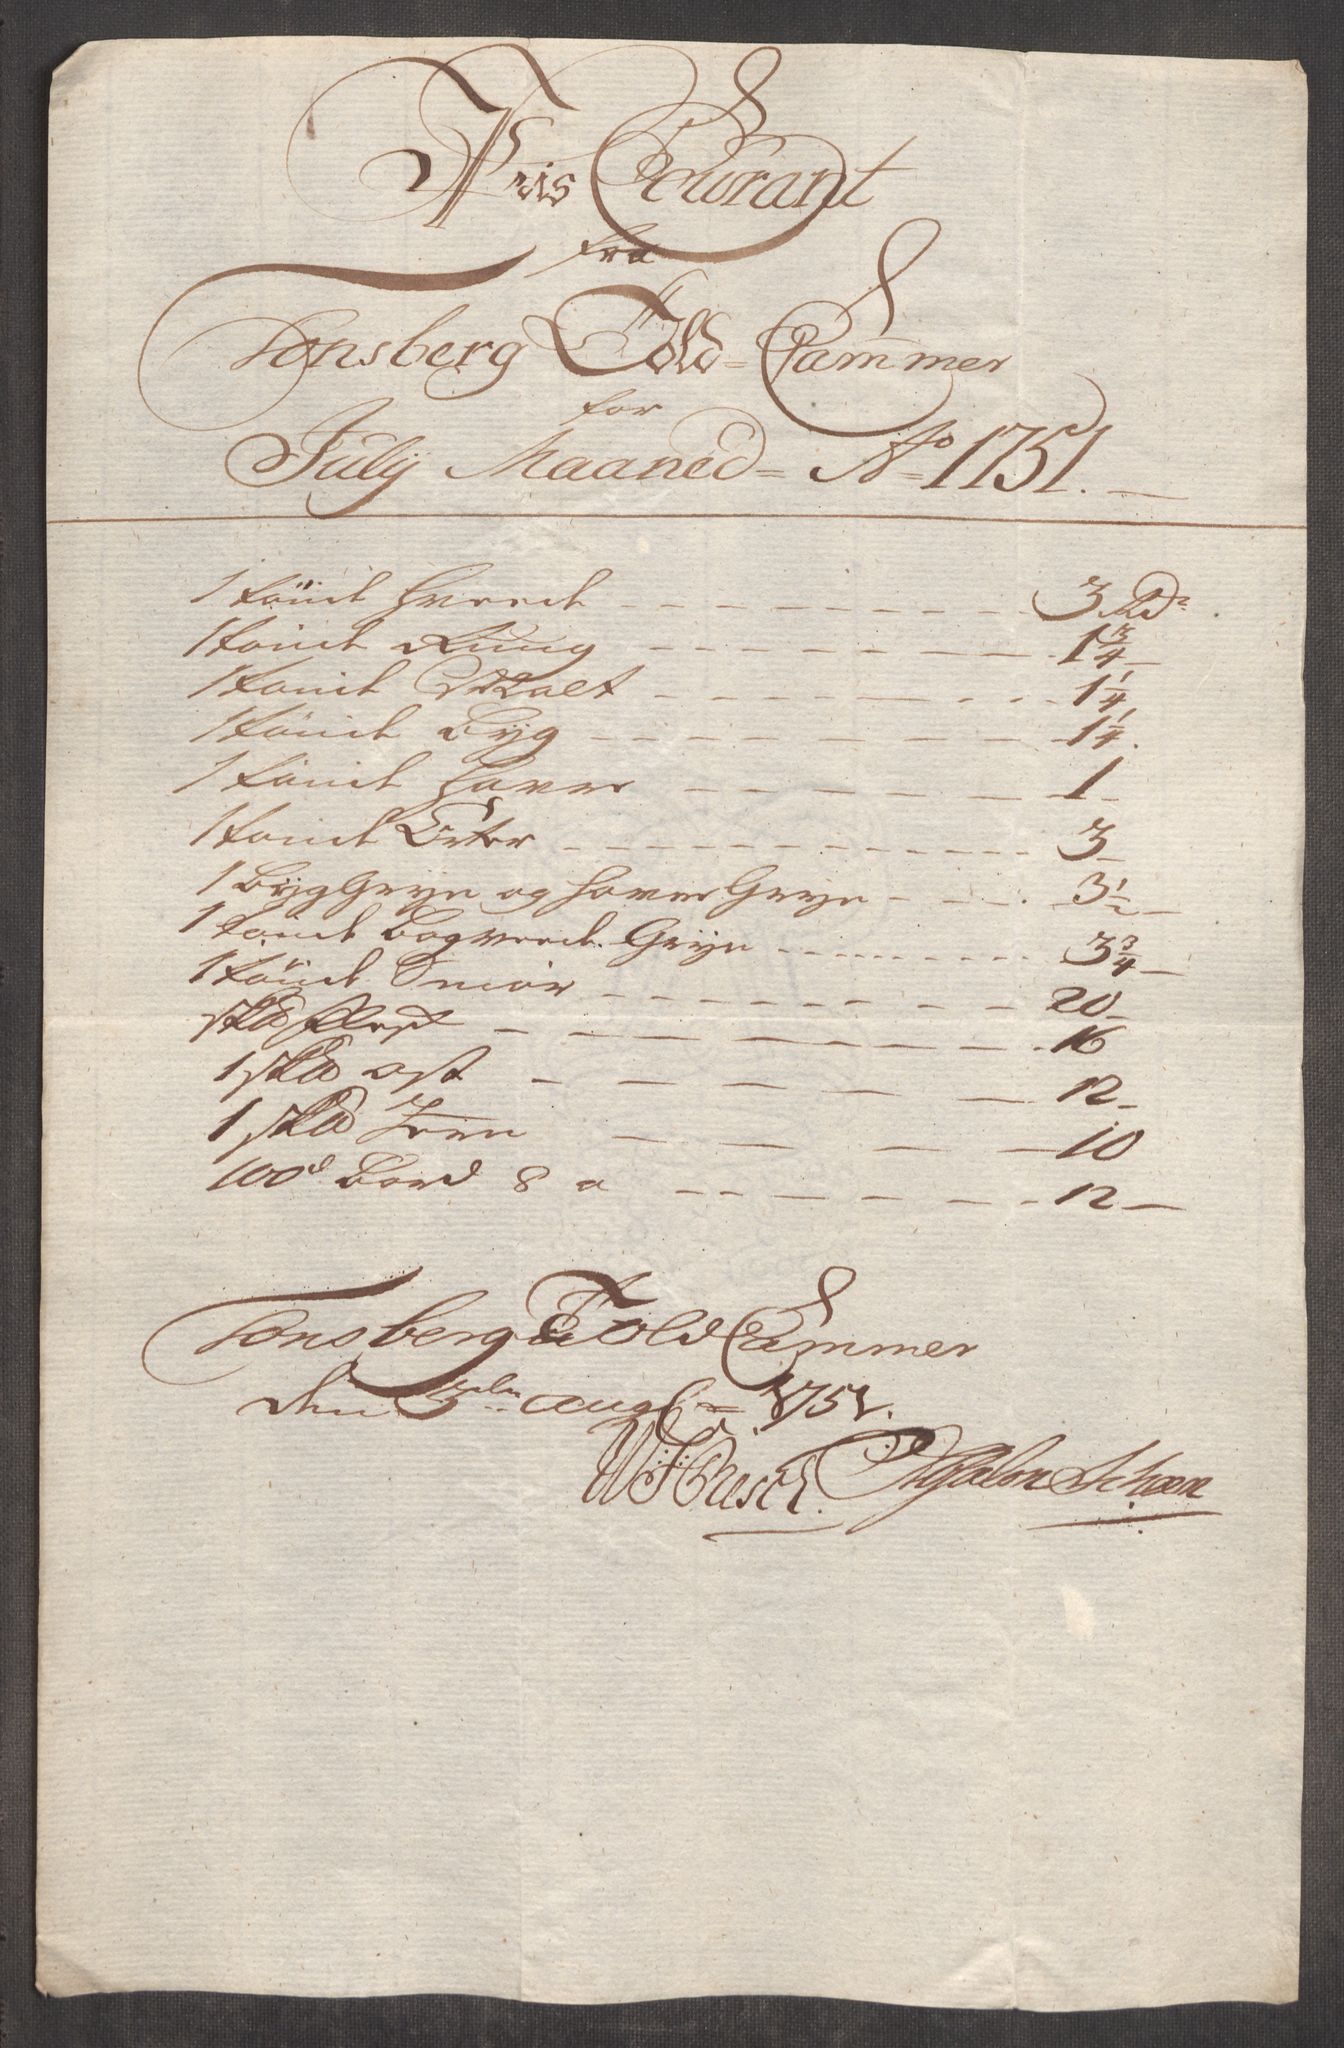 Pris Courant
fra
Tonsberg Told-Cammer
for
July Maaned = Ao 1751.
1 tönde Hveede 3 Rdr.
1 tönde Rug 1 3/4
1 tönde Malt 1 1/4
1 tönde Byg 1 1/4.
1 tönde Haver 1
1 tönde Erter 3
1 Byg Gryn og Haver Gryn 3 1/2
1 tönde Bogveede Gryn 3 3/4
1 tönde Smör 20
Skd Flesk 16
1 Skd ost 12
1 Skd Jern 10
100d Bord 8 a 12
Tonsberg Told Cammer
den 3den augt = 1751.
W F Busch. Schøn